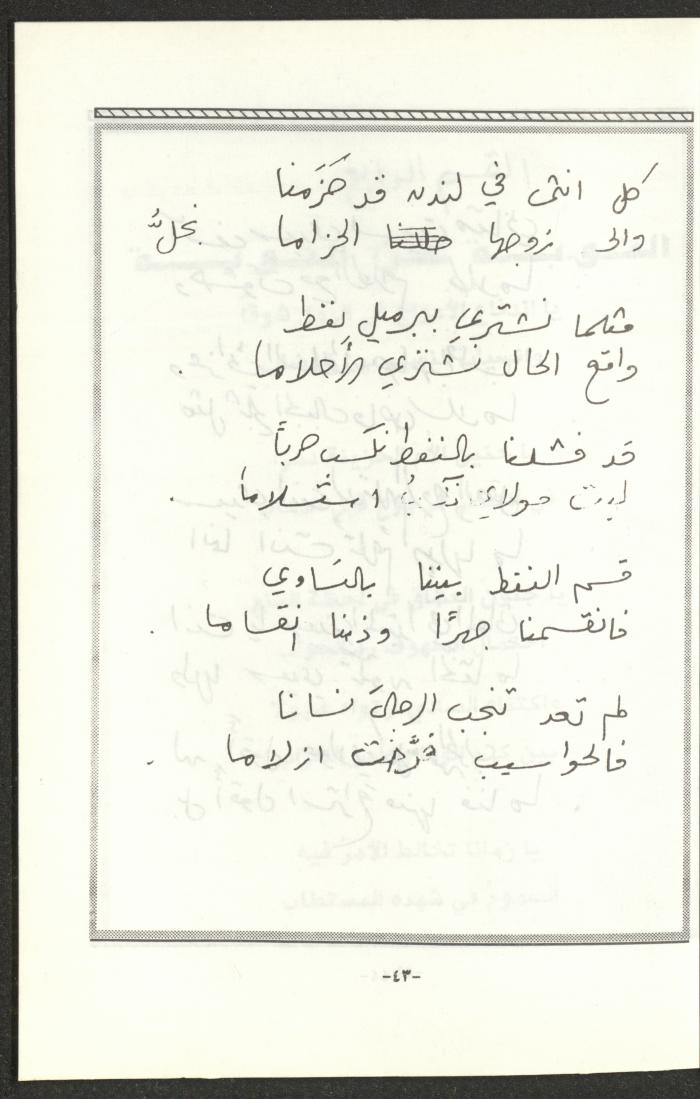 كل انثى في لندن قد حَزَمنا
والى زوجها حللنا الحزاما نحلُّ
مثلما نشتري ببرميل نفط
واقع الحال نشتري الأحلاما .
قد فشلنا بالنفط نكسب حرباً
ليت مولاي استسلاما .
قسم النفط بيننا بالتساوي
فانقسمنا جهرًا وذبنا انقساما .
لم تعد تنجب الرجالَ نسانا
فالحواسيب فرَّخت ازلاما .
-٤٣-